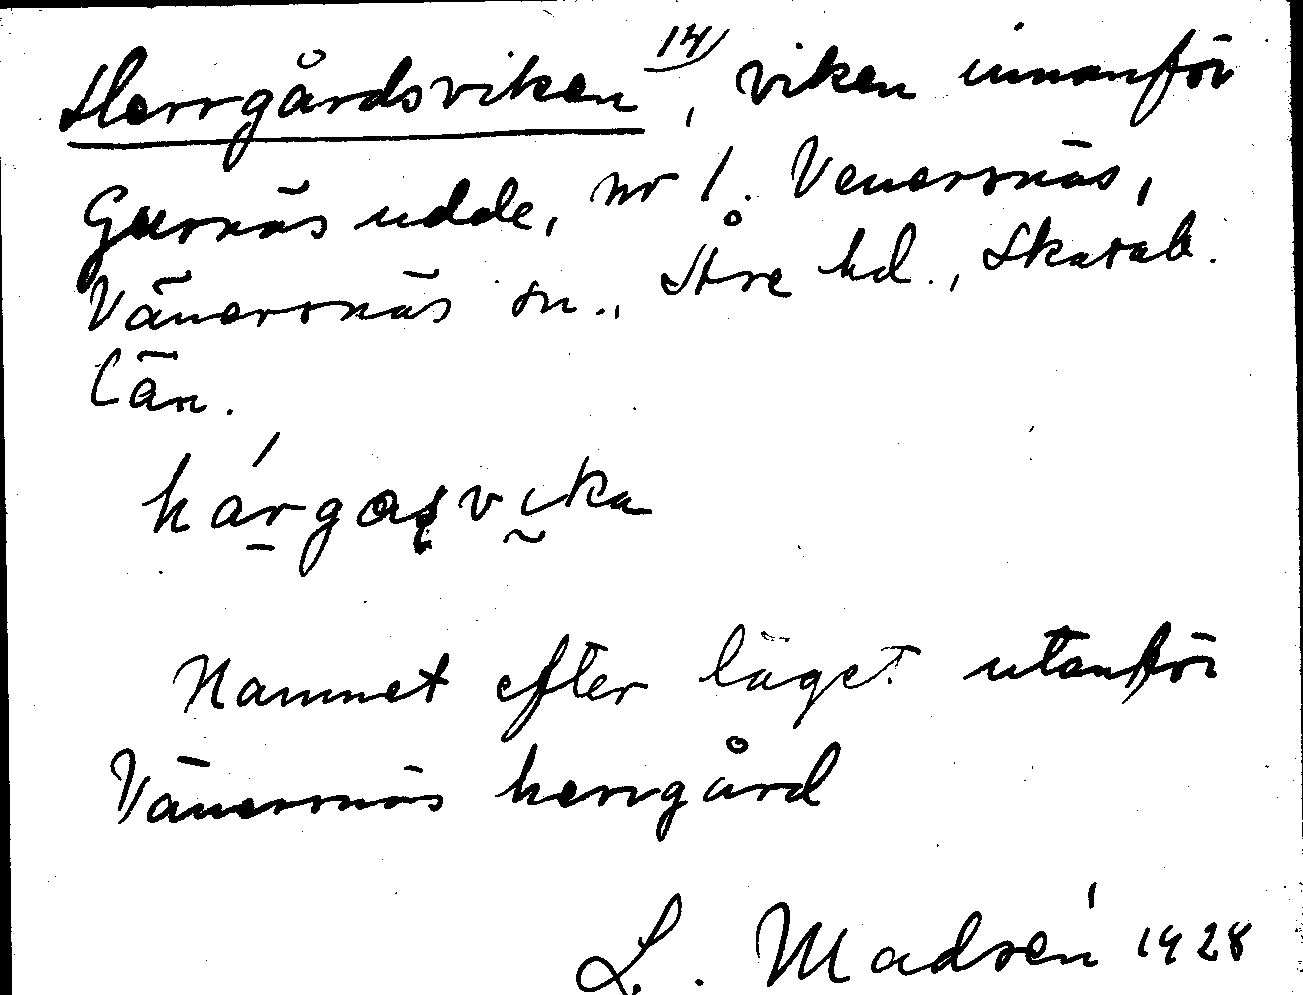 Herrgårdsviken 14), viken innanför
Gurnäs udde, nr 1. Venersnäs,
Vänersnäs sn., Åse hd., Skarab.
län.
Namnet efter läget utanför
Vänersnäs herrgård
L. Madsén 1928